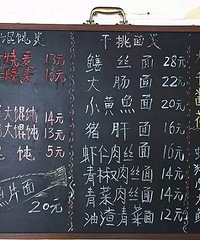 干挑面类
鳝丝面 28元
大肠面 22元
小黄鱼面 20元
猪肝面 16元
虾仁肉丝面 16元
青椒肉丝面 14元
青菜肉丝面 14元
油渣青菜面 12元
馄饨类
13元
16元
大馄饨 14元
大馄饨 13元
馄饨 5元
片面
20元